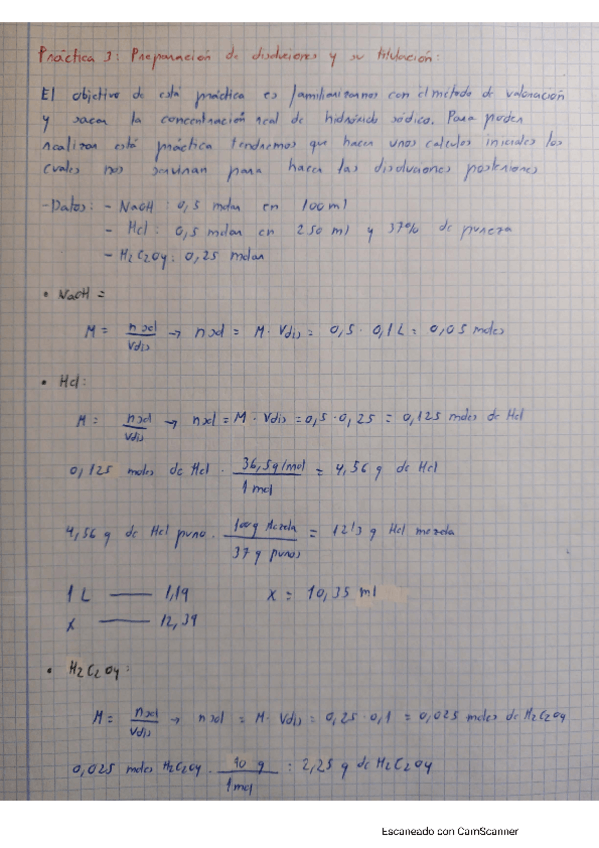 Práctica 3: Preparación de disoluciones y su titulación:
El objetivo de está práctica es familiarizarnos con el método de valoración
y sacar la concentración real de hidróxido sódico. Para poder
realizar está práctica tendremos que hacer unos calculos iniciales los
cuales nos serviran para hacer las disoluciones posteriores
-Datos: - NaOH : 0,5 molar en 100 ml
- Hcl : 0,5 molar en 250 ml y 37% de pureza
- H2C2O4 : 0,25 molar
• NaOH =
M = n sol / Vdis → n sol = M · Vdis = 0,5 · 0,1 L = 0,05 moles
• Hcl:
M = n sol / Vdis → n sol = M · Vdis = 0,5 · 0,25 = 0,125 moles de Hcl
0,125 moles de Hcl · 36,5 g/mol / 1 mol = 4,56 g de Hcl
4,56 g de Hcl puro · 100g Mezcla / 37 g puros = 12'3 g Hcl mezcla
1 L —— 1,19 x = 10,35 ml
x —— 12,39
• H2C2O4:
M = n sol / Vdis → n sol = M · Vdis = 0,25 · 0,1 = 0,025 moles de H2C2O4
0,025 moles H2C2O4 · 90 g / 1 mol : 2,25 g de H2C2O4
Escaneado con CamScanner